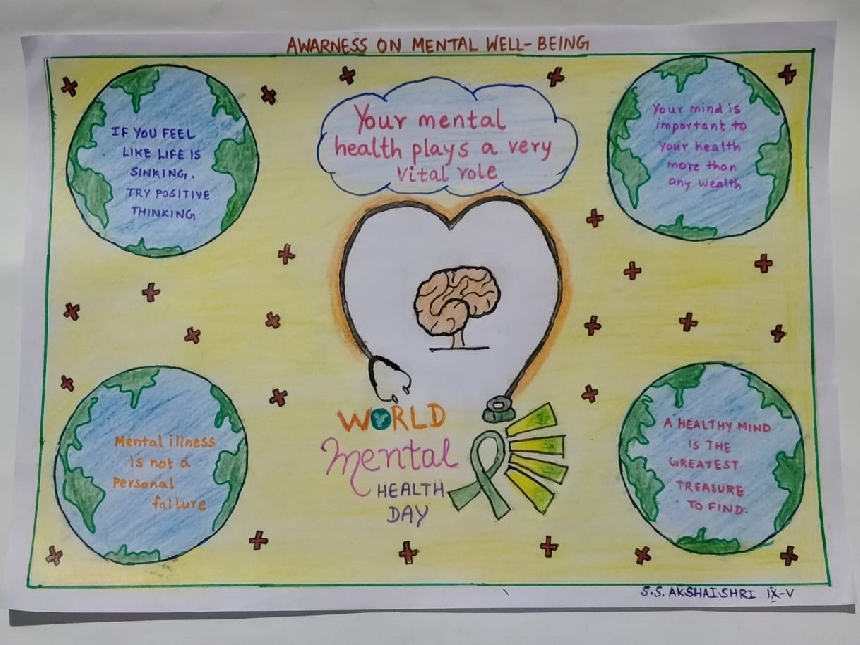 AWARNESS ON MENTAL WELL-BEING
IF YOU FEEL
LIKE LIFE IS
SINKING.
TRY POSITIVE
THINKING
Your mental
health plays a very
vital role
Your mind is
important to
your health
more than
any wealth
Mental illness
is not a
Personal
failure
WORLD
Mental
HEALTH
DAY
A HEALTHY MIND
IS THE
GREATEST
TREASURE
TO FIND.
S.S. AKSHAISHRI IX-V